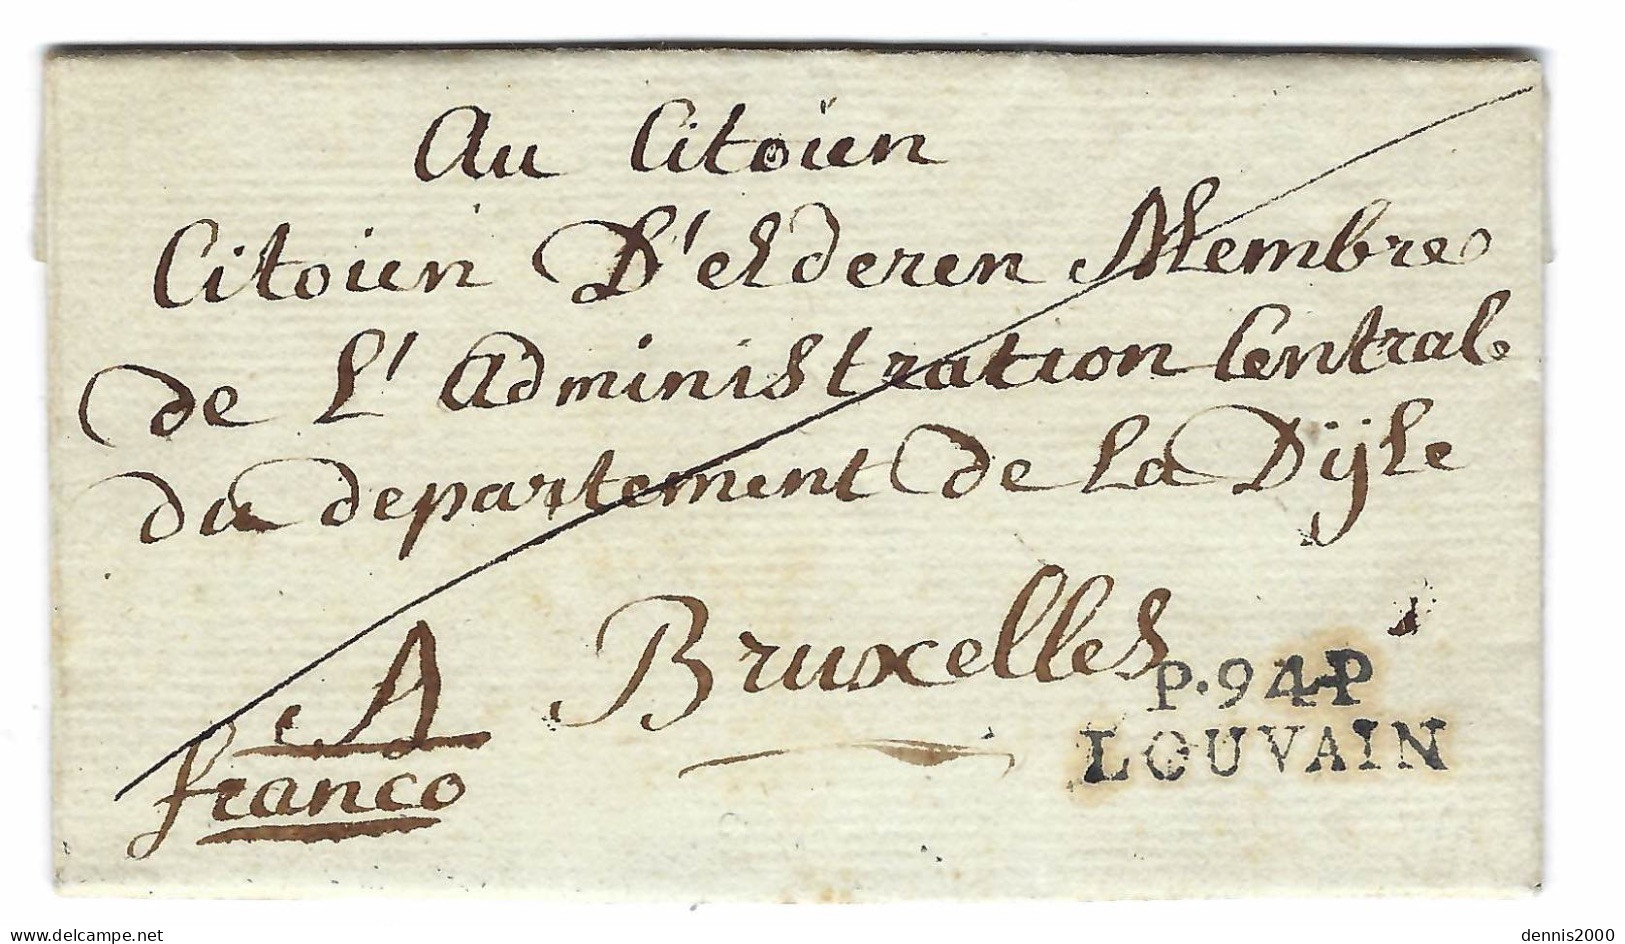 Au Citoien
Citoien D'elderen Membre
de L'Administration Central
du departement de La Dijle
A Bruxelles
franco
P.94.P
LOUVAIN
www.delcampe.net
dennis2000